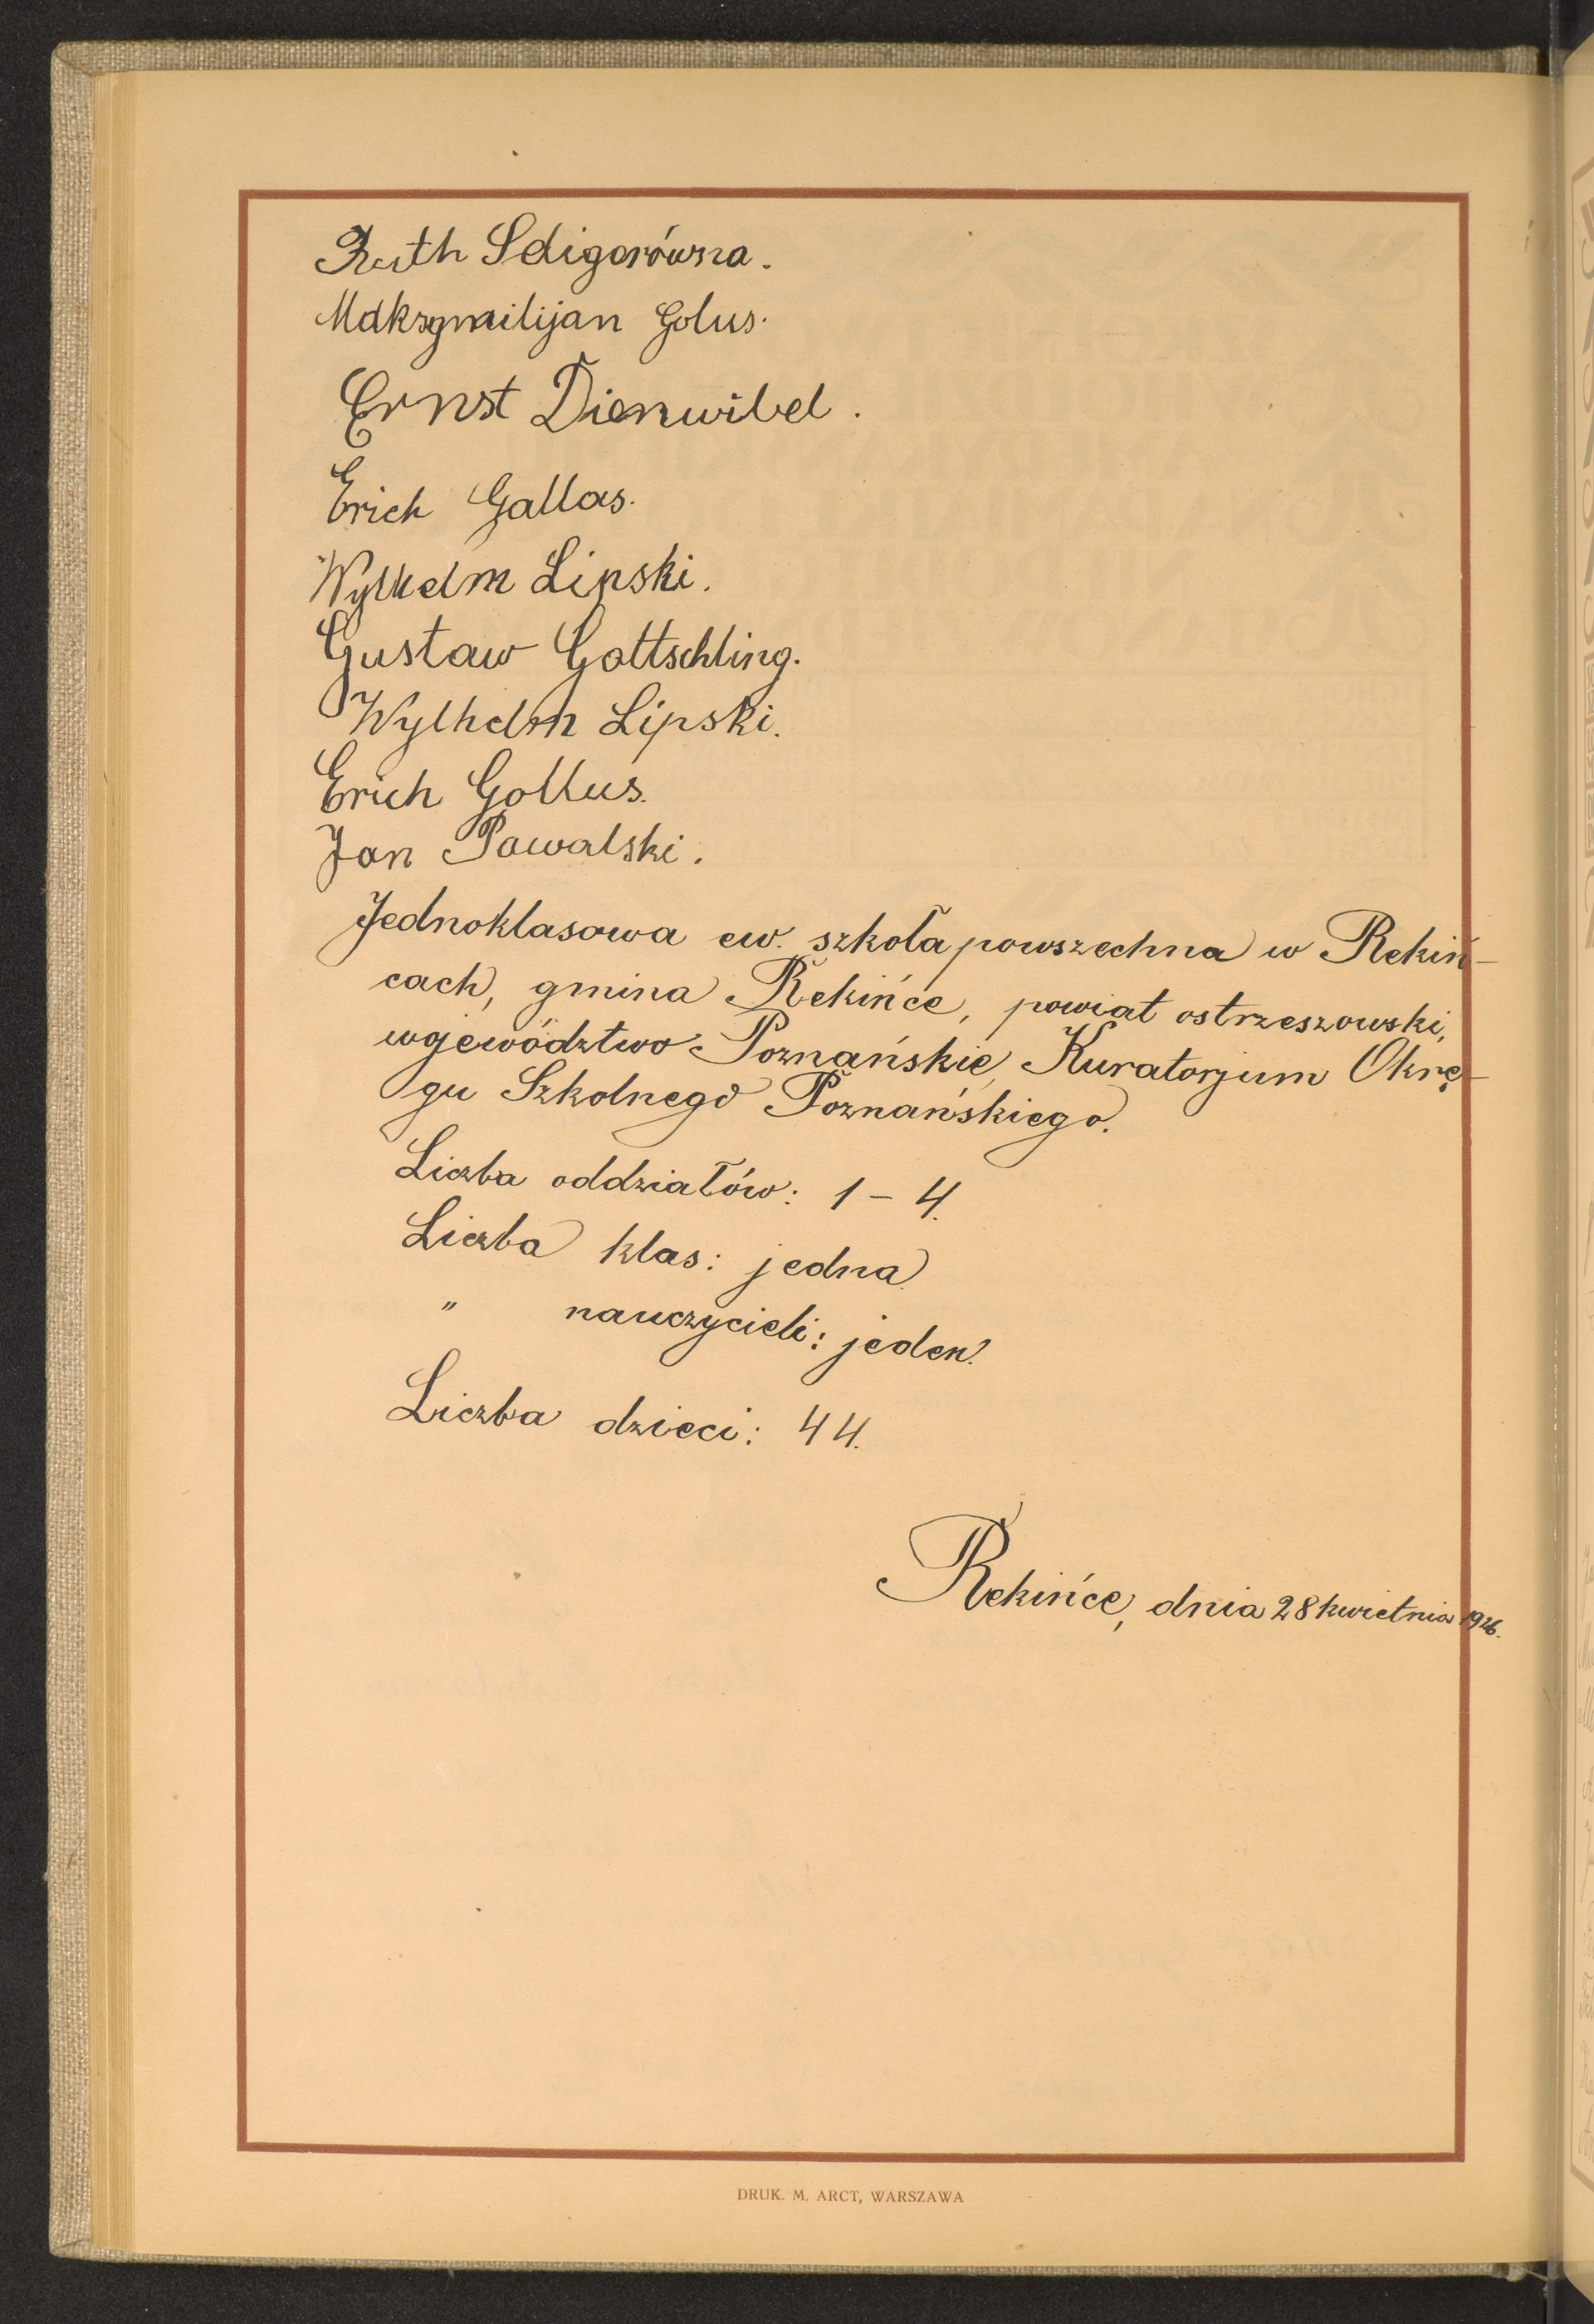 Ruth Seligerówna.
Maksymilijan Golus.
Ernst Dienwibel.
Erich Gallas.
Wylhelm Lipski.
Gustaw Gottschling.
Wylhelm Lipski.
Erich Gollus.
Jan Powalski.
Jednoklasowa ew. szkoła powszechna w Rekiń-
cach, gmina Rekińce, powiat ostrzeszowski,
wojewódżtwo Poznańskie, Kuratorjum Okrę-
gu Szkolnego Poznańskiego.
Liczba oddziałów: 1 – 4.
Liczba klas: jedna.
" nauczycieli: jeden.
Liczba dzieci: 44.
Rekińce, dnia 28 kwietnia 1926.
DRUK. M. ARCT, WARSZAWA